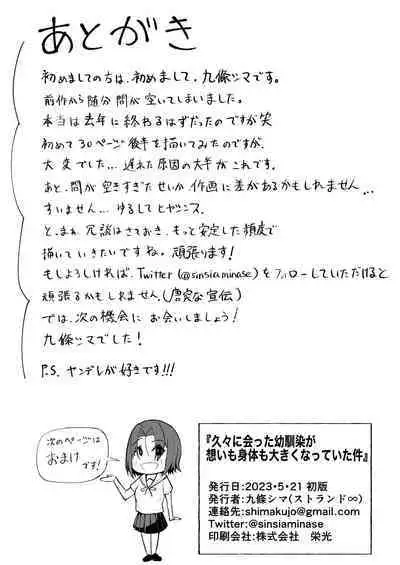 あとがき
初めましての方は、初めまして。九條シマです。
前作から随分間が空いてしまいました。
本当は去年に終わるはずだったのですが笑
初めて30ページ後半を描いてみたのですが、
大変でした…遅れた原因の大半がこれです。
あと、間が空きすぎたせいか作画に差があるかもしれません…
すいません…ゆるしてヒヤシンス。
と、まぁ冗談はさておき、もっと安定した頻度で
描いていきたいですね。頑張ります!
もしよろしければ、Twitter(@sinsiaminase)をフォローしていただけると
頑張るかもしれません。(唐突な宣伝)
では、次の機会にお会いしましょう!
九條シマでした!
P.S. ヤンデレが好きです!!!
次のページは
おまけです!
『久々に会った幼馴染が
想いも身体も大きくなっていた件』
発行日:2023・5・21 初版
発行者:九條シマ(ストランド∞)
連絡先:shimakujo@gmail.com
Twitter:@sinsiaminase
印刷会社:株式会社 栄光